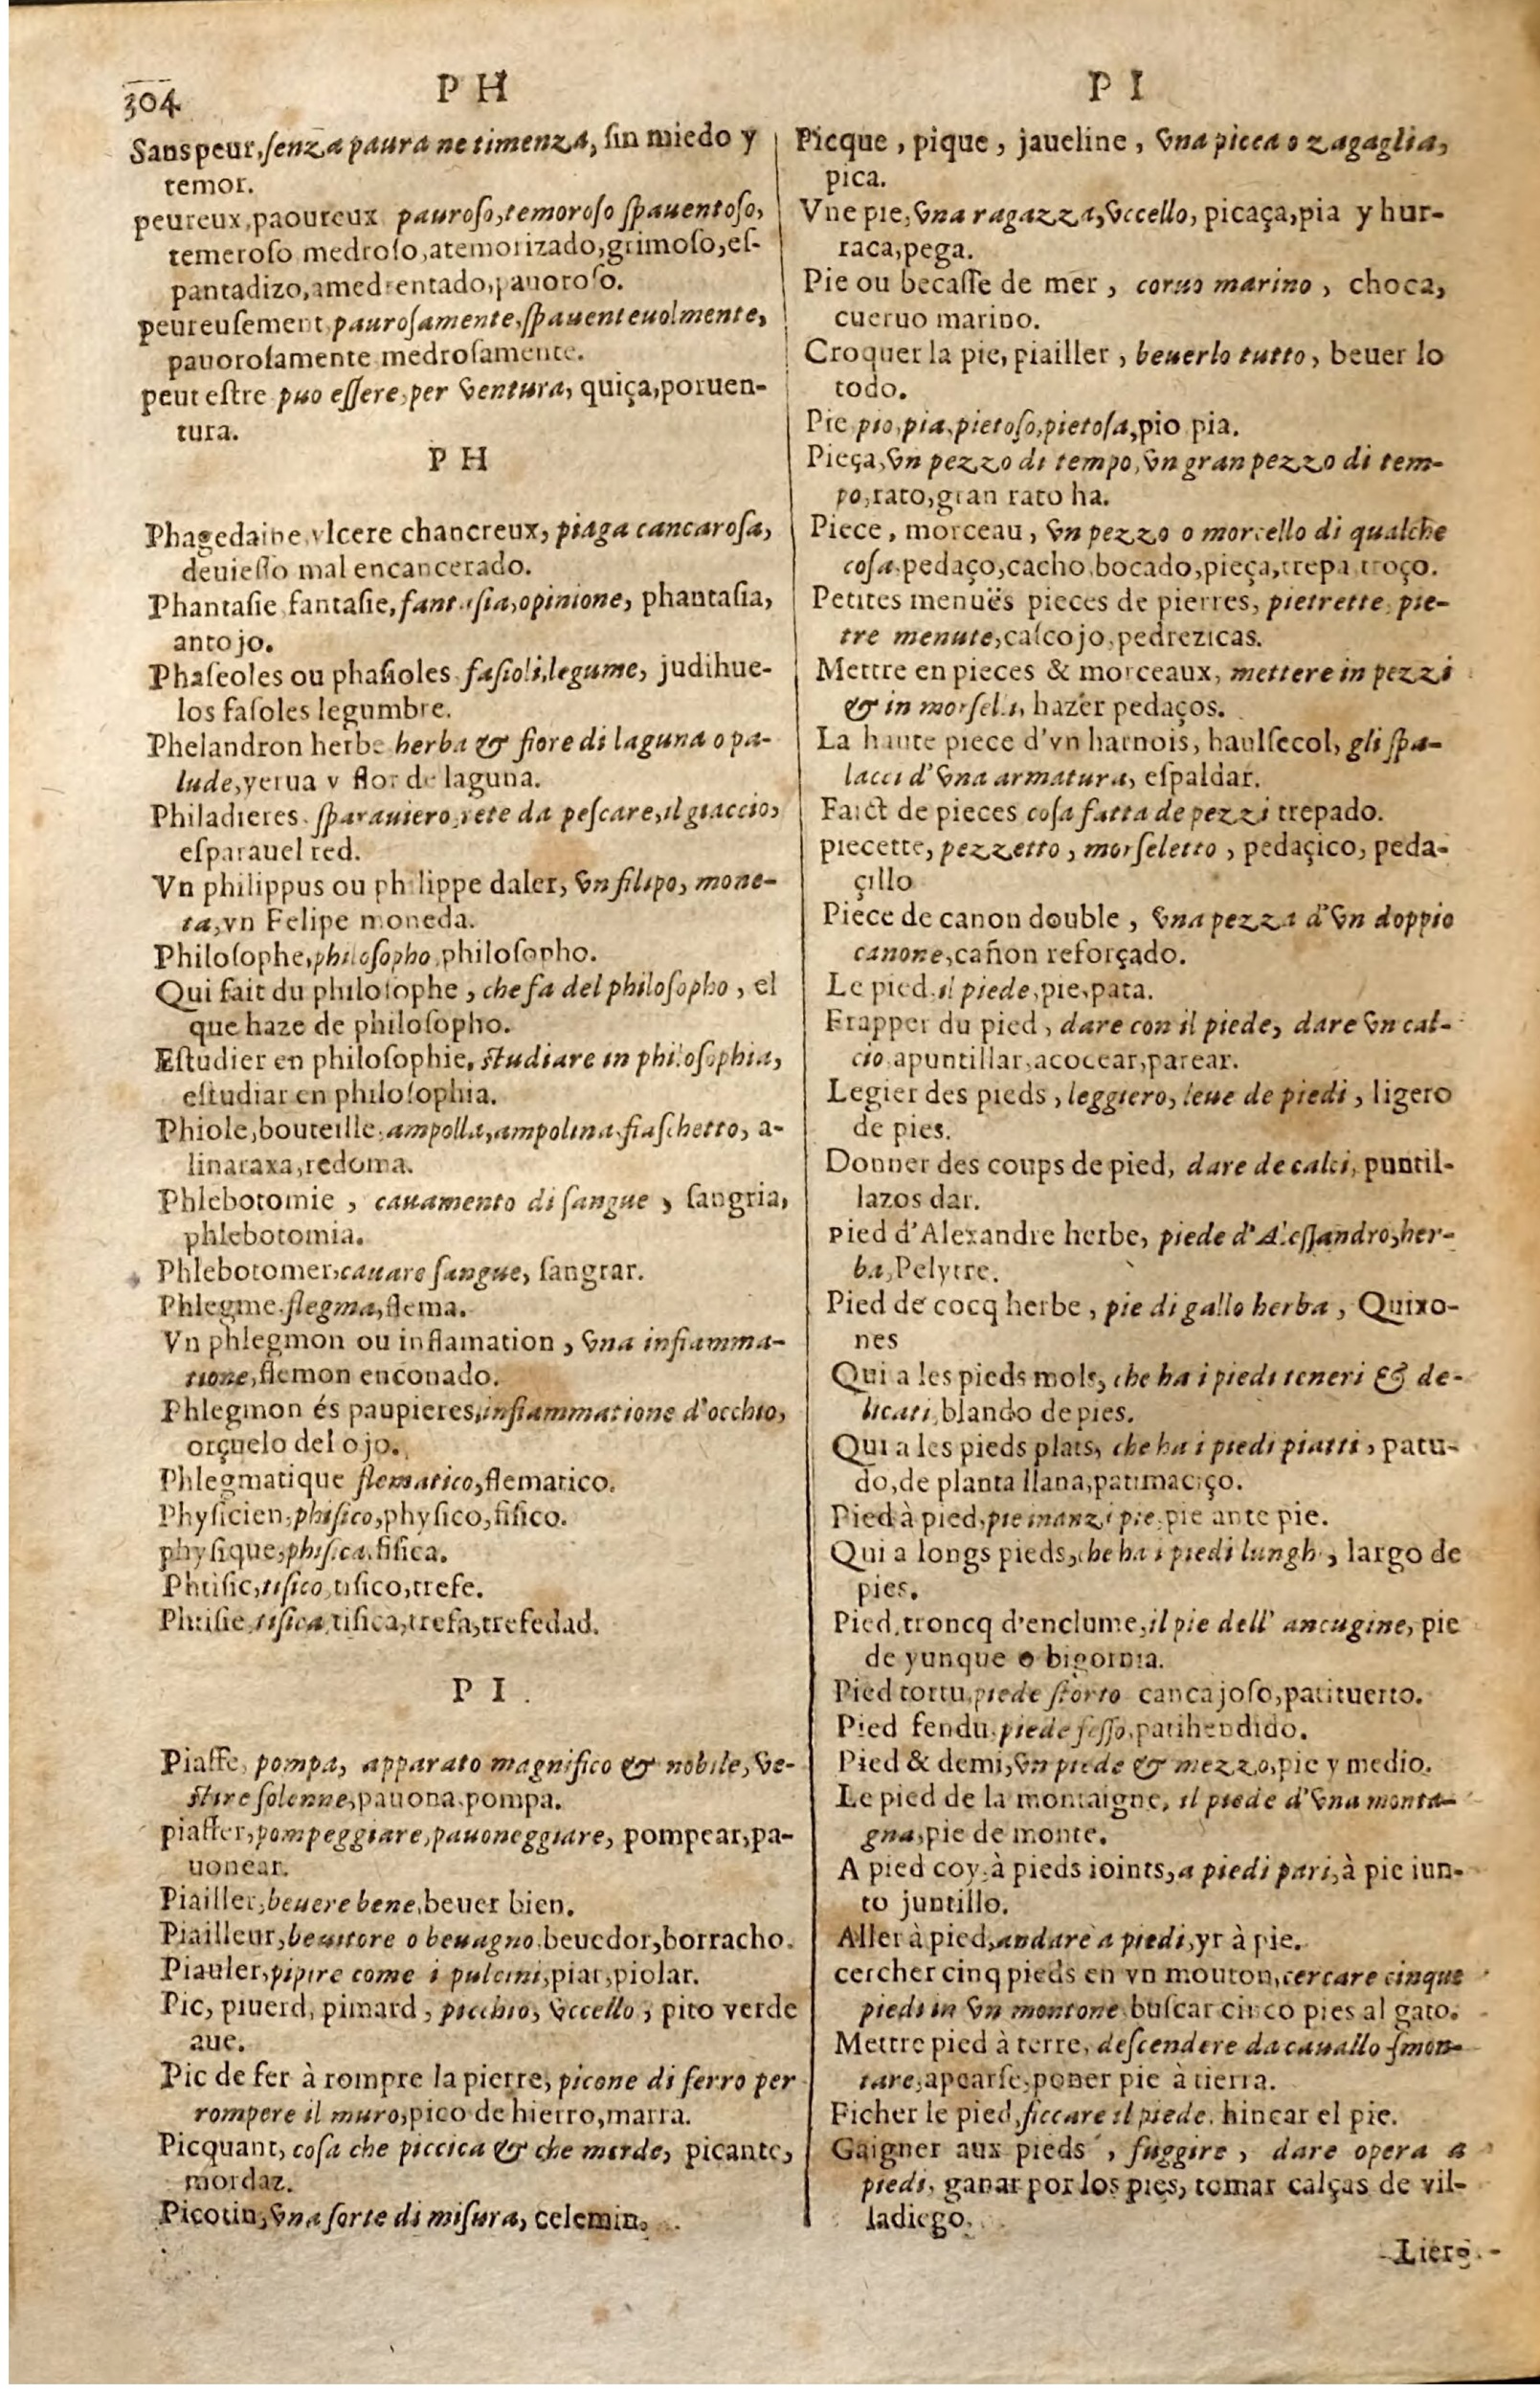 304
P H
P I
Sans peur, ſenza paura ne timenza, ſin miedo y
temor.
peureux, paoureux pauroſo, temoroſo ſpauentoſo,
temeroſo medroſo, atemorizado, grimoſo, eſ-
pantadizo, amedrentado, pauoroſo.
peureuſement pauroſamente, ſpauenteuolmente,
pauoroſamente medroſamente.
peut eſtre puo eſſere, per ventura, quiça, poruen-
tura.
P H
Phagedaine vlcere chancreux, piaga cancaroſa,
deuieſſo mal encancerado.
Phantaſie fantaſie, fantaſia, opinione, phantaſia,
antojo.
Phaſeoles ou phaſioles faſioli, legume, judihue-
los faſoles legumbre.
Phelandron herbe herba & fiore di laguna o pa-
lude, yerua y flor de laguna.
Philadieres ſparauiero, rete da peſcare, il giaccio,
eſparauel red.
Vn philippus ou philippe daler, vn filipo, mone-
ta, vn Felipe moneda.
Philoſophe, philoſopho, philoſopho.
Qui fait du philoſophe, che fa del philoſopho, el
que haze de philoſopho.
Eſtudier en philoſophie, ſtudiare in philoſophia,
eſtudiar en philoſophia.
Phiole, bouteille, ampolla, ampolina, fiaſchetto, a-
linaraxa, redoma.
Phlebotomie, cauamento di ſangue, ſangria,
phlebotomia.
Phlebotomer, cauare ſangue, ſangrar.
Phlegme flegma, flema.
Vn phlegmon ou inflamation, vna infiamma-
tione, flemon enconado.
Phlegmon és paupieres, infiammatione d'occhio,
orçuelo del ojo.
Phlegmatique flematico, flematico.
Phyſicien, phiſico, phyſico, fiſico.
phyſique, phiſica, fiſica.
Phtiſic, tiſico, tiſico, trefe.
Phtiſie, tiſica, tiſica, trefa, trefedad.
P I.
Piaffe, pompa, apparato magnifico & nobile, ve-
ſtire ſolenne, pauona, pompa.
piaffer, pompeggiare, pauoneggiare, pompear, pa-
uonear.
Piailler, beuere bene, beuer bien.
Piailleur, beuitore o beuagno, beuedor, borracho.
Piauler, pipire come i pulcini, piar, piolar.
Pic, piuerd, pimard, picchio, vccello, pito verde
aue.
Pic de fer à rompre la pierre, picone di ferro per
rompere il muro, pico de hierro, marra.
Picquant, coſa che piccica & che morde, picante,
mordaz.
Picotin, vna ſorte di miſura, celemin.
Picque, pique, jaueline, vna picca o zagaglia,
pica.
Vne pie, vna ragazza, vccello, picaça, pia y hur-
raca, pega.
Pie ou becaſſe de mer, coruo marino, choca,
cueruo marino.
Croquer la pie, piailler, beuerlo tutto, beuer lo
todo.
Pie pio, pia, pietoſo, pietoſa, pio pia.
Pieça, vn pezzo di tempo, vn gran pezzo di tem-
po, rato, gran rato ha.
Piece, morceau, vn pezzo o morcello di qualche
coſa, pedaço, cacho, bocado, pieça, trepa troço.
Petites menuës pieces de pierres, pietrette, pie-
tre menute, caſcojo, pedrezicas.
Mettre en pieces & morceaux, mettere in pezzi
& in morſelli, hazer pedaços.
La haute piece d'vn harnois, haulſecol, gli ſpa-
lacci d'vna armatura, eſpaldar.
Faict de pieces coſa fatta de pezzi trepado.
piecette, pezzetto, morſeletto, pedaçico, peda-
çillo
Piece de canon double, vna pezza d'vn doppio
canone, cañon reforçado.
Le pied, il piede, pie, pata.
Frapper du pied, dare con il piede, dare vn cal-
cio, apuntillar, acocear, patear.
Legier des pieds, leggiero, leue de piedi, ligero
de pies.
Donner des coups de pied, dare de calci, puntil-
lazos dar.
pied d'Alexandre herbe, piede d'Aleſſandro, her-
ba, Pelytre.
Pied de cocq herbe, pie di gallo herba, Quixo-
nes
Qui a les pieds mols, che ha i piedi teneri & de-
licati, blando de pies.
Qui a les pieds plats, che ha i piedi piatti, patu-
do, de planta llana, patimaciço.
Pied à pied, pie inanzi pie, pie ante pie.
Qui a longs pieds, che ha i piedi lunghi, largo de
pies.
Pied, troncq d'enclume, il pie dell' ancugine, pie
de yunque o bigornia.
Pied tortu, piede ſtorto cancajoſo, patituerto.
Pied fendu, piede feſſo, patihendido.
Pied & demi, vn piede & mezzo, pie y medio.
Le pied de la montaigne, il piede d'vna monta-
gna, pie de monte.
A pied coy, à pieds ioints, a piedi pari, à pie iun-
to juntillo.
Aller à pied, andare a piedi, yr à pie.
cercher cinq pieds en vn mouton, cercare cinque
piedi in vn montone buſcar cinco pies al gato.
Mettre pied à terre, deſcendere da cauallo ſmon-
tare, apearſe, poner pie à tierra.
Ficher le pied, ficcare il piede, hincar el pie.
Gaigner aux pieds, fuggire, dare opera a
piedi, ganar por los pies, tomar calças de vil-
ladiego.